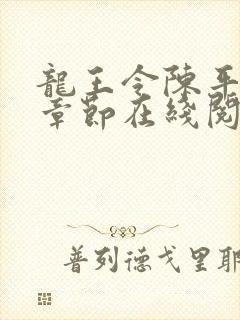 龍王令陳平
章節在綫閱
普列德戈里耶